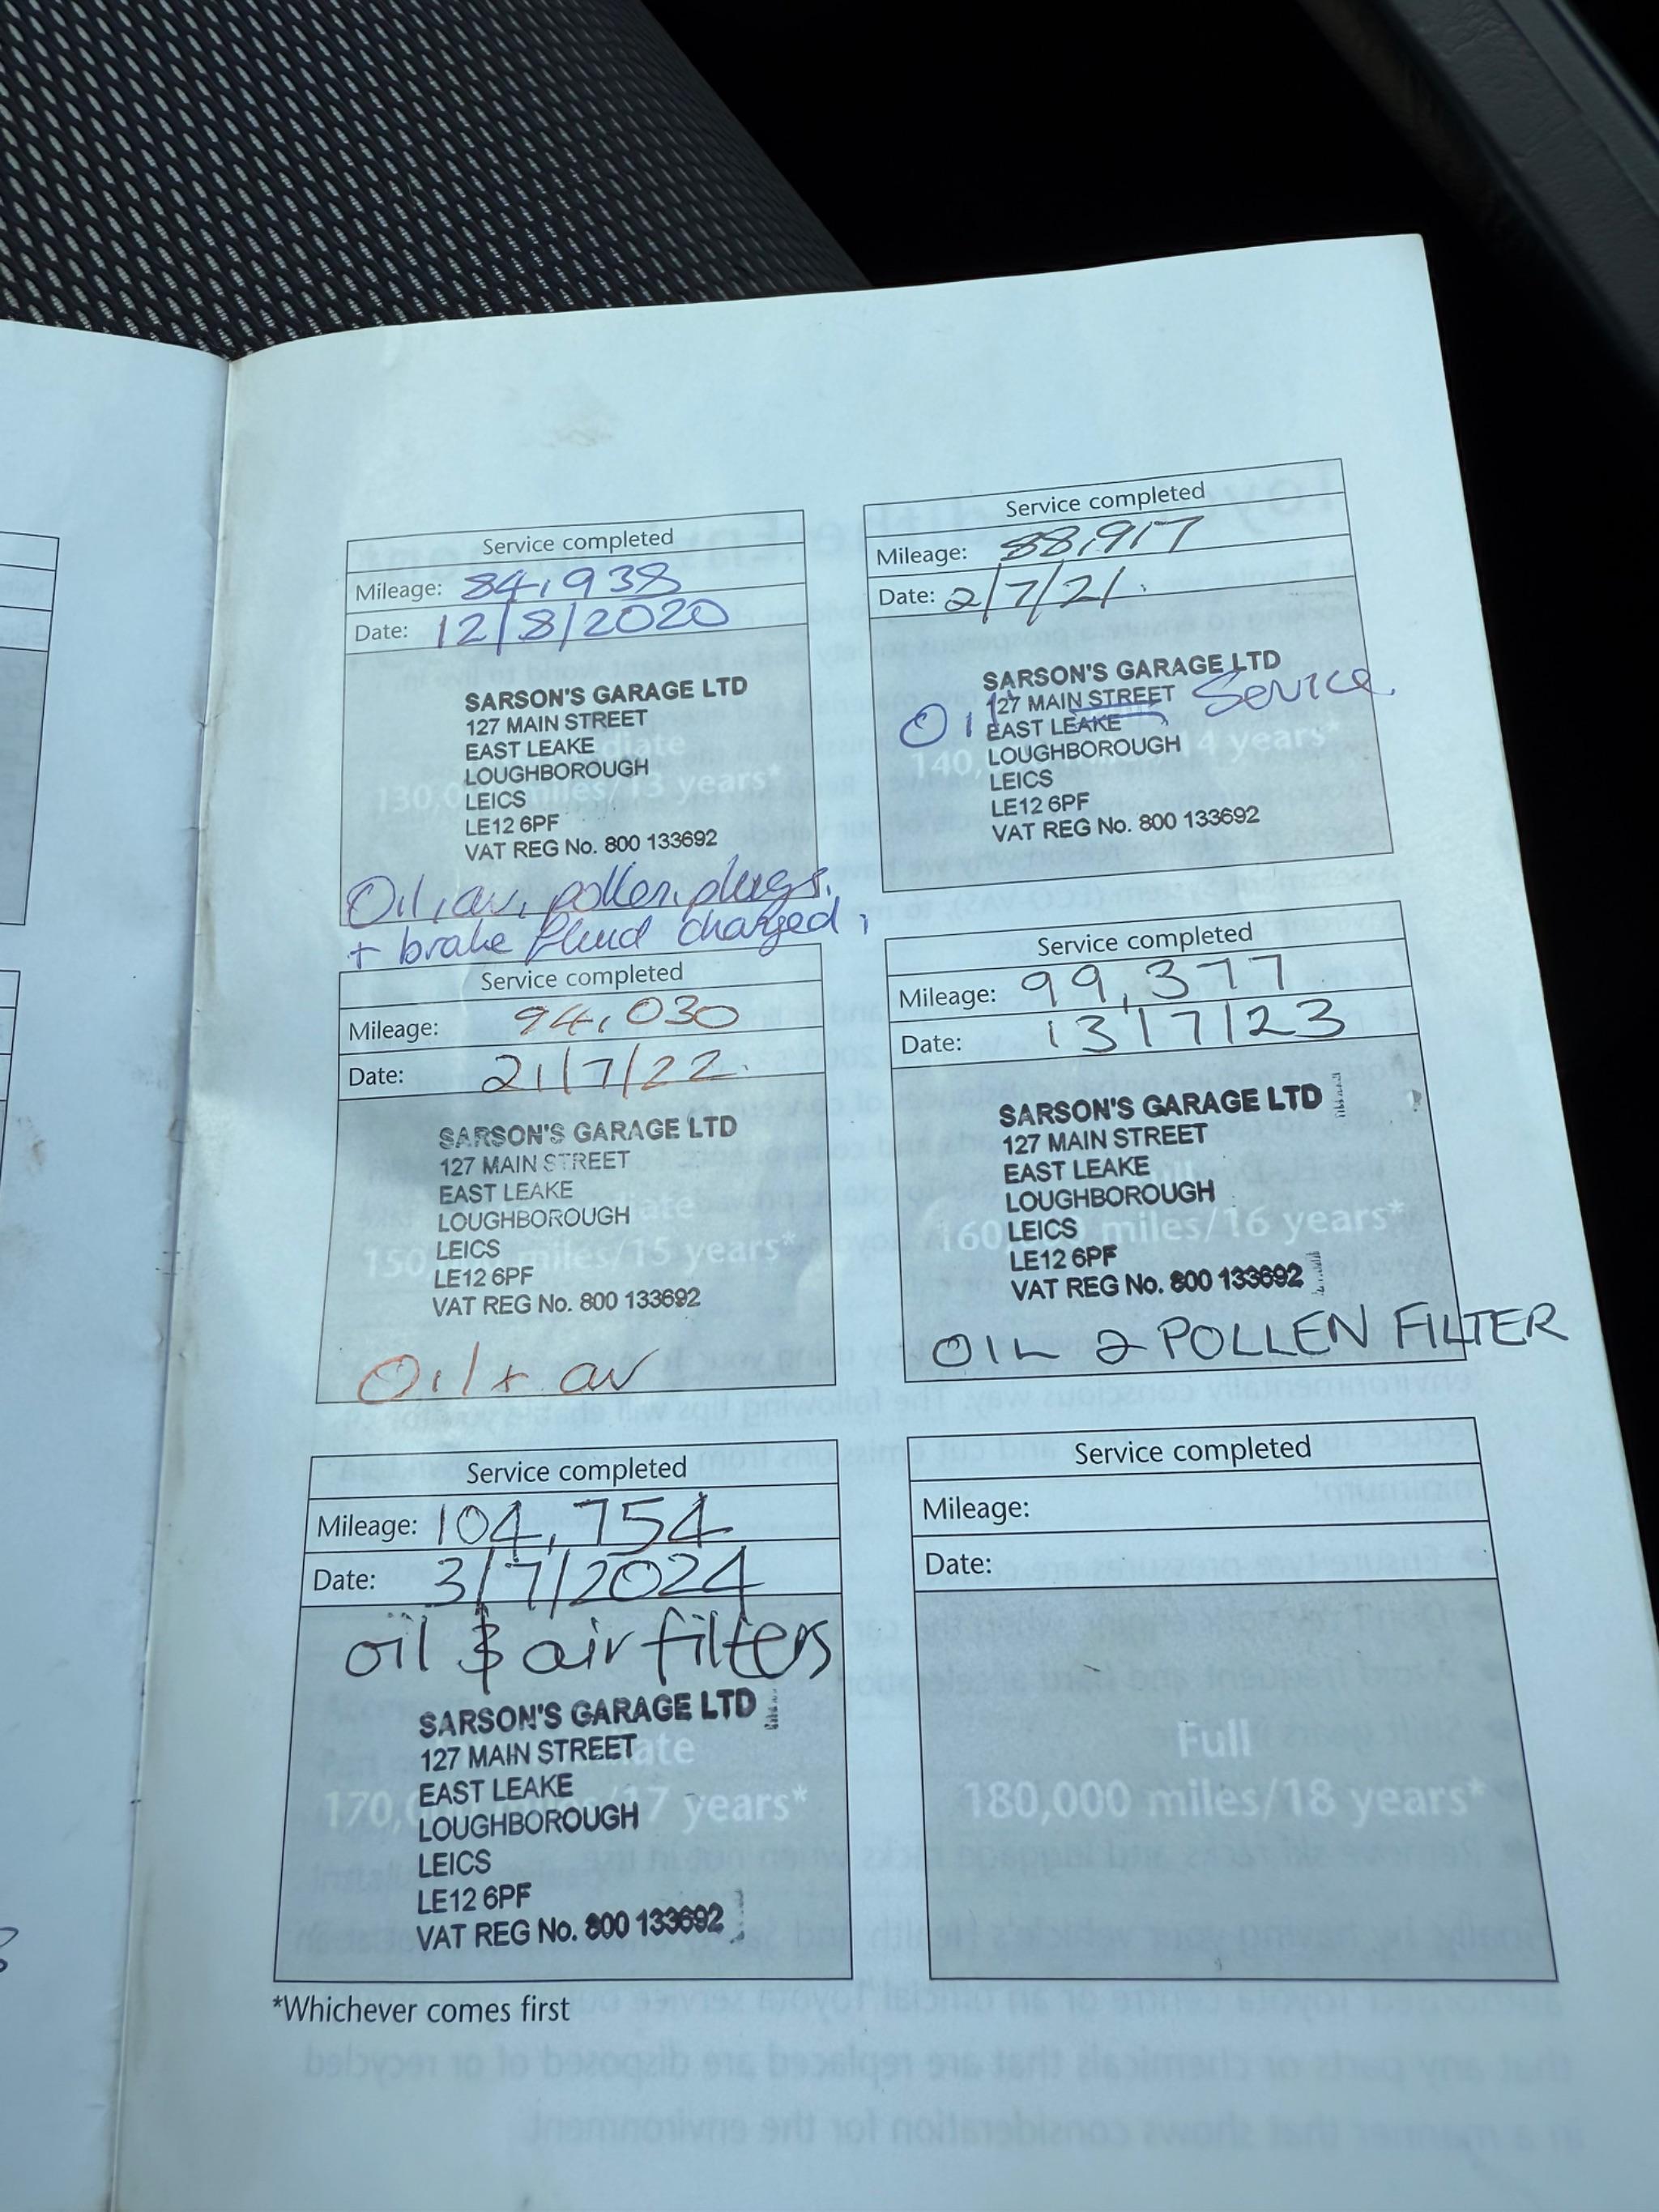 Service completed
Mileage: 84,938
Date: 12/8/2020
SARSON'S GARAGE LTD
127 MAIN STREET
EAST LEAKE
LOUGHBOROUGH
LEICS
LE12 6PF
VAT REG No. 800 133692
miles/13 years*
Oil, air, pollen, plugs.
+ brake fluid changed,
Service completed
Mileage: 88,917
Date: 2/7/21.
SARSON'S GARAGE LTD
127 MAIN STREET
Oil Service.
EAST LEAKE
LOUGHBOROUGH
LEICS
LE12 6PF
VAT REG No. 800 133692
14 years*
Service completed
Mileage: 94,030
Date: 21/7/22.
SARSON'S GARAGE LTD
127 MAIN STREET
EAST LEAKE
LOUGHBOROUGH
LEICS
LE12 6PF
VAT REG No. 800 133692
miles/15 years*
Oil + air
Service completed
Mileage: 99,377
Date: 13/7/23
SARSON'S GARAGE LTD
127 MAIN STREET
EAST LEAKE
LOUGHBOROUGH
LEICS
LE12 6PF
VAT REG No. 800 133692
miles/16 years*
OIL & POLLEN FILTER
Service completed
Mileage: 104,754
Date: 3/7/2024
oil & air filters
SARSON'S GARAGE LTD
127 MAIN STREET
EAST LEAKE
LOUGHBOROUGH
LEICS
LE12 6PF
VAT REG No. 800 133692
years*
Service completed
Mileage:
Date:
Full
180,000 miles/18 years*
*Whichever comes first